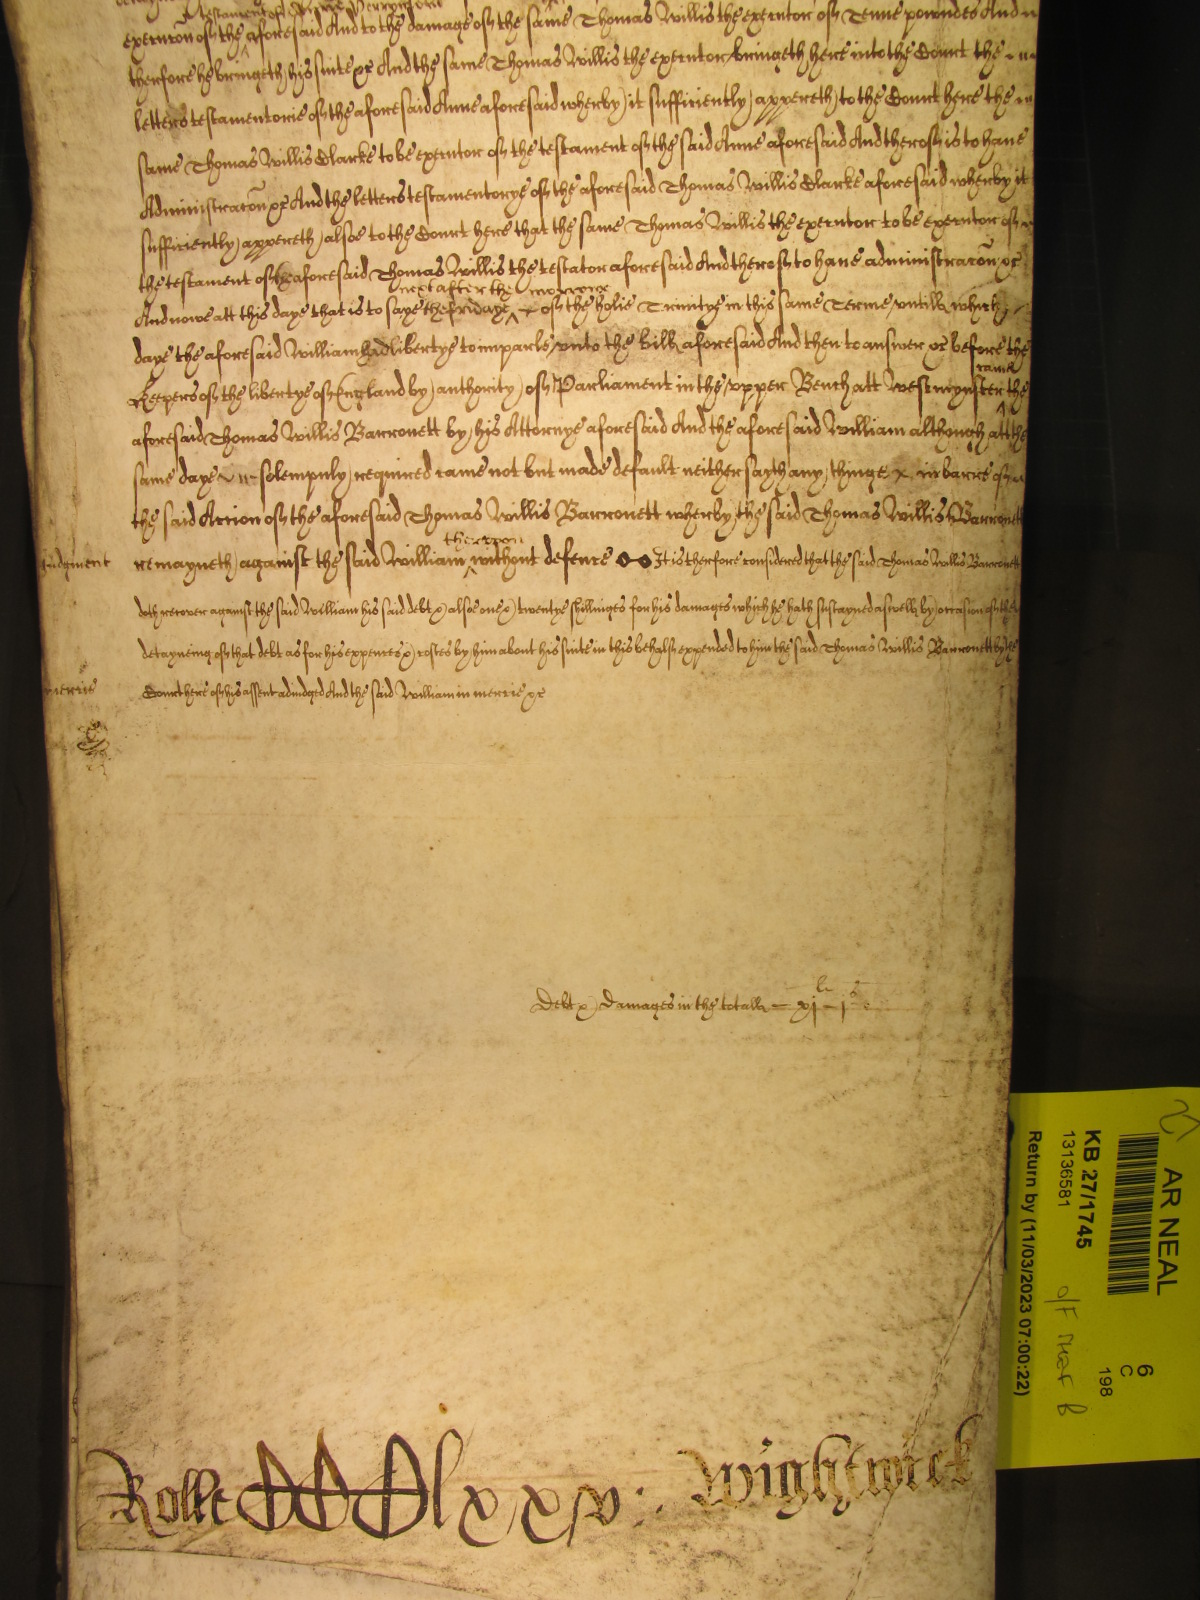 Testament of Anne
execucon of the aforesaid And to the damage of the same Thomas Willis the executor of Tenne poundes And
therfore he bringeth his suite &c And the same Thomas Willis the executor bringeth here into the Court the
letters testamentorie of the aforesaid Anne aforesaid wherby it sufficiently appereth to the Court here the
same Thomas Willis Clarke to be executor of the testament of the said Anne aforesaid And therof is to have
Administracon &c And the letters testamentorye of the aforesaid Thomas Willis Clarke aforesaid wherby it
sufficiently appereth alsoe to the Court here that the same Thomas Willis the executor to be executor of
the testament of the aforesaid Thomas Willis the testator aforesaid And therof to have administracon &c
next after the morrowe
And nowe att this daye that is to saye the fridaye of the holie Trinitye in this same Terme untill which
daye the aforesaid William had libertye to imparle unto the bill aforesaid And then to answer &c before the
came
Keepers of the libertye of England by authority of Parliament in the upper Bench att Westmynster the
aforesaid Thomas Willis Barronett by his Attornye aforesaid And the aforesaid William although att the
same daye solempnly required came not but made default neither sayth any thinge in barre of
the said Accion of the aforesaid Thomas Willis Barronett wherby the said Thomas Willis Barronett
therupon
Judgment remayneth against the said William without defence It is therfore considered that the said Thomas Willis Barronett
doth recover against the said William his said debt & alsoe one & twentye shillinges for his damages which he hath sustayned aswell by occasion of the
detayneing of that debt as for his expences & costes by him about his suite in this behalf expended to him the said Thomas Willis Barronett by the
mercie Court here of his assent adiudged And the said William in mercie &c
li s
Debt & damages in the totall xj j
Rolle CCClxxv : Wightwick
AR NEAL
KB 27/1745
13136581
Return by (11/03/2023 07:00:22)
6
C
198